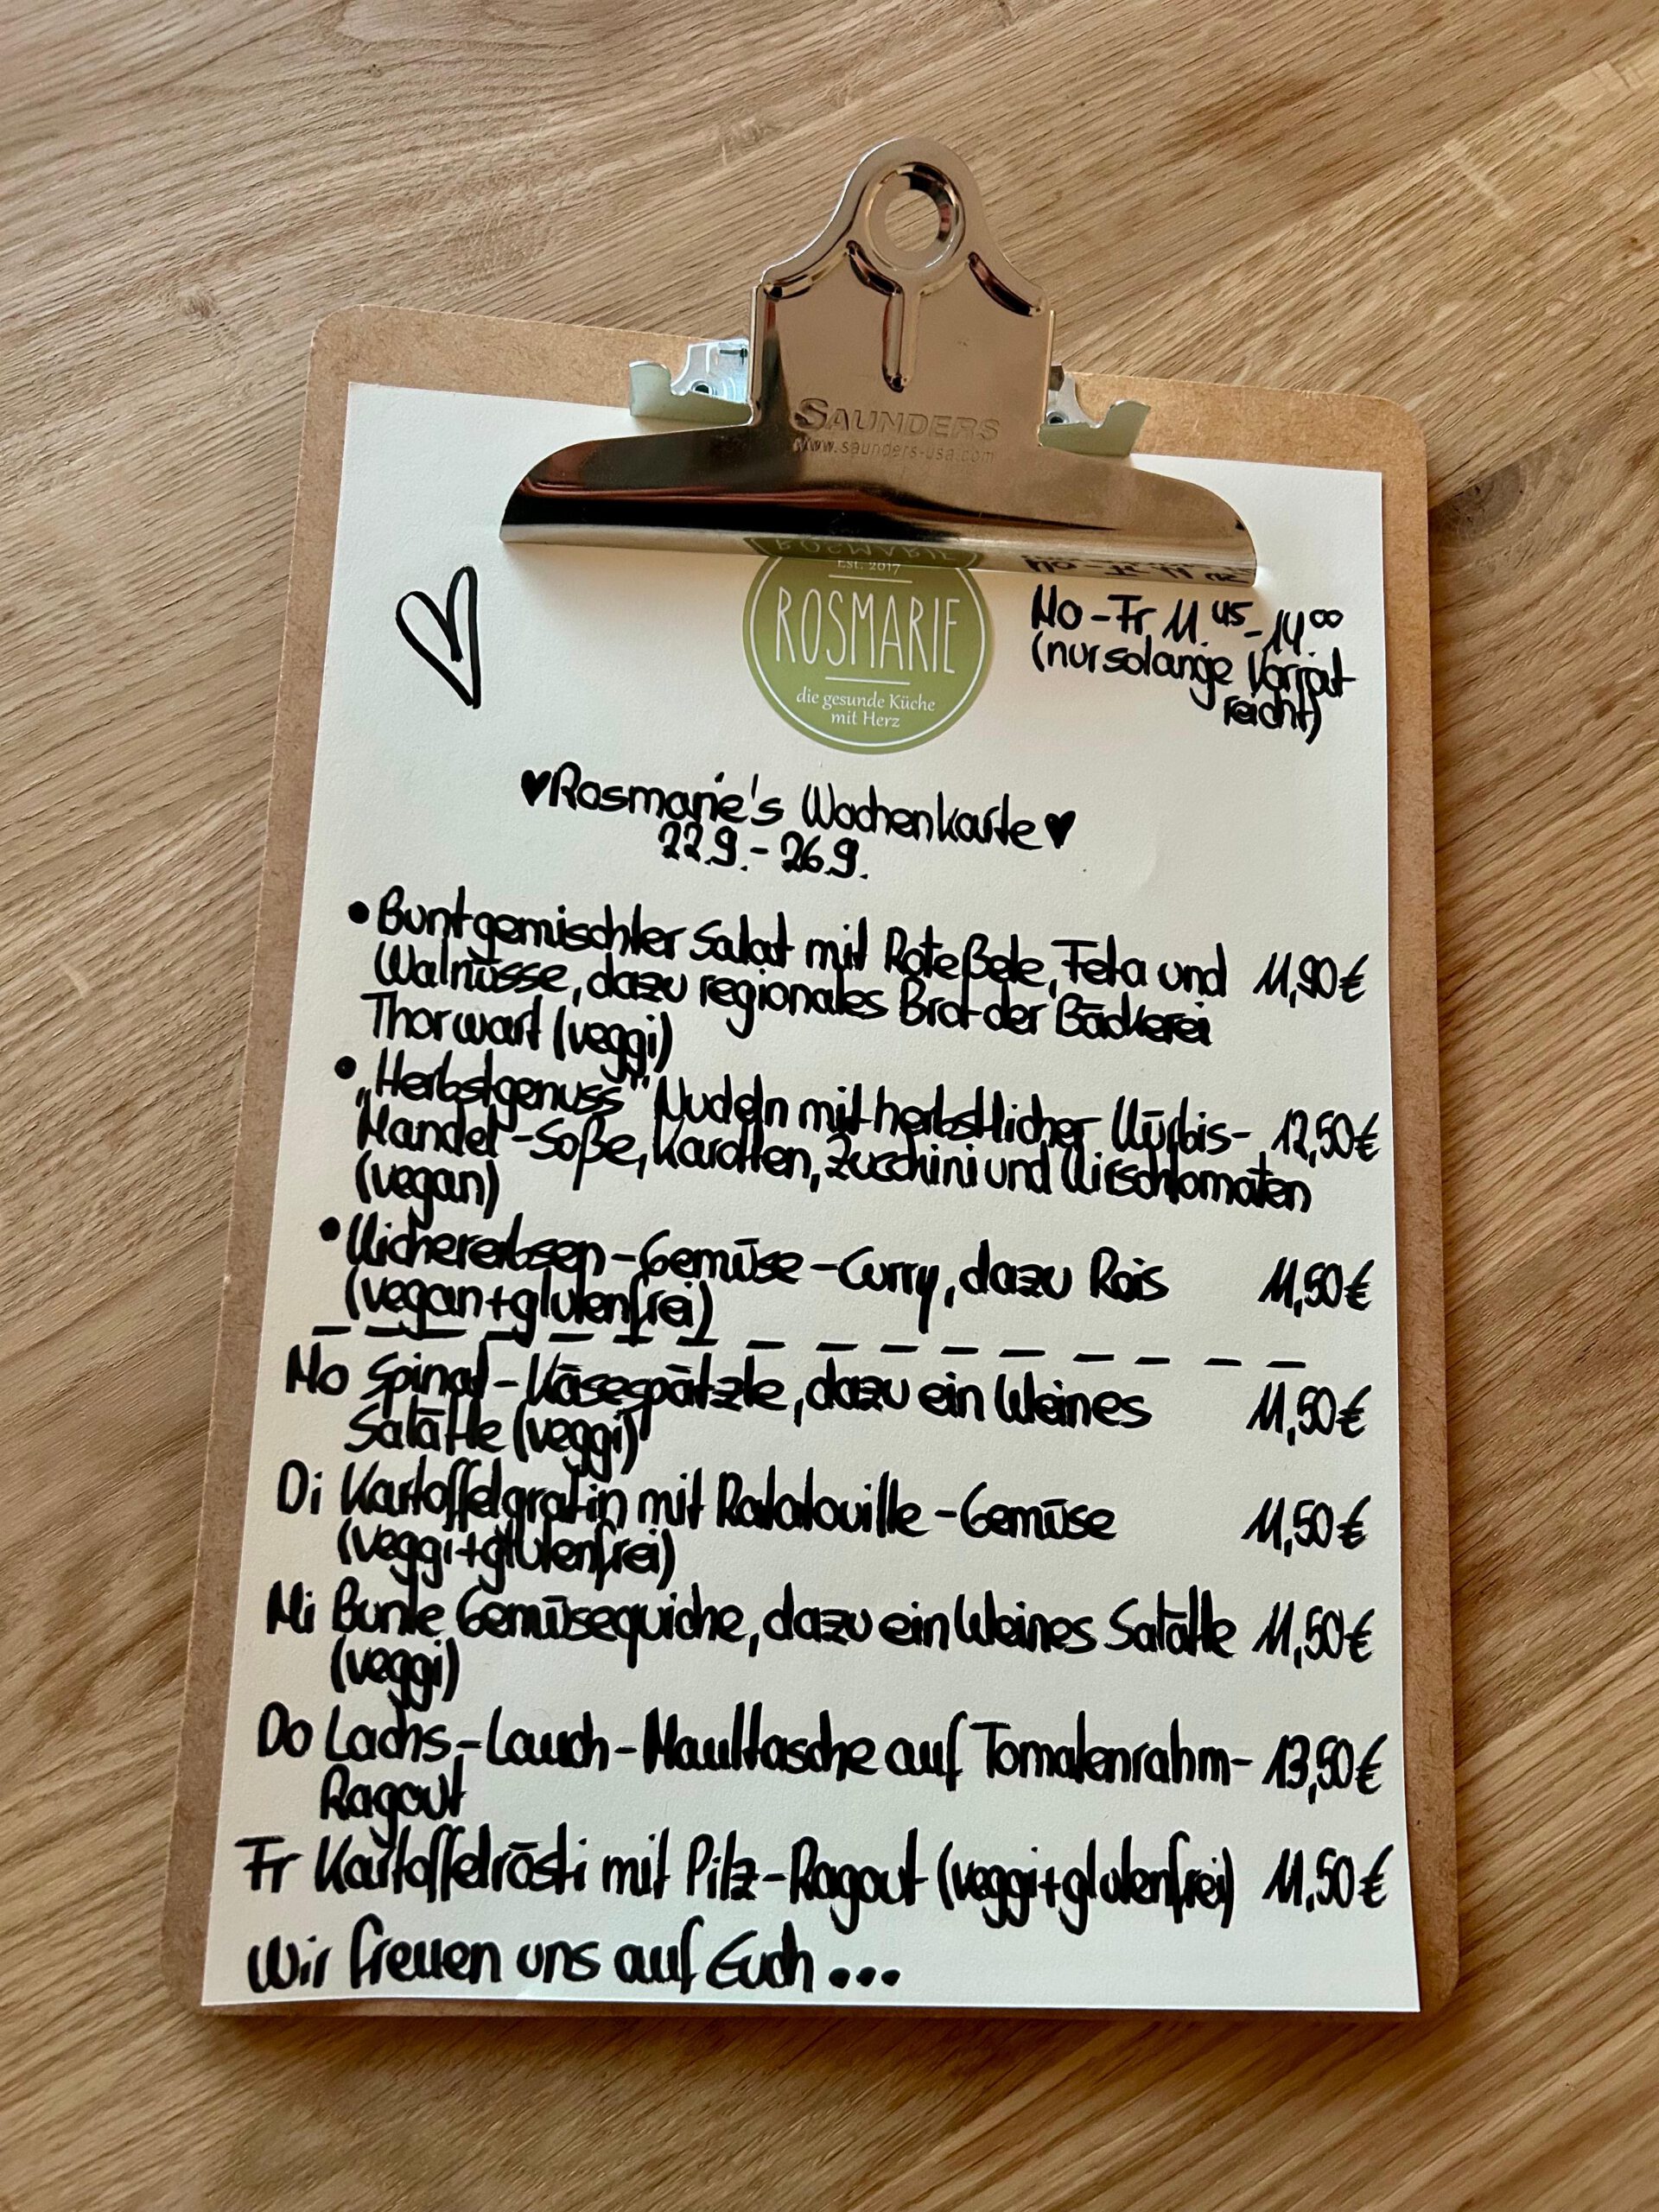 SAUNDERS
www.saunders-usa.com
Est. 2017
ROSMARIE
die gesunde Küche
mit Herz
Mo-Fr 11.45-14.00
(nur solange Vorrat
reicht)
♥Rosmarie's Wochenkarte♥
22.9.-26.9.
• Buntgemischter Salat mit Rote Bete, Feta und 11,90€
Walnüsse, dazu regionales Brot der Bäckerei
Thorwart (veggi)
• „Herbstgenuss" Nudeln mit herbstlicher Kürbis- 12,50€
Mandel-Soße, Karotten, Zucchini und Kirschtomaten
(vegan)
• Kichererbsen-Gemüse-Curry, dazu Reis 11,50€
(vegan+glutenfrei)
Mo Spinat-Käsespätzle, dazu ein kleines 11,50€
Salätle (veggi)
Di Kartoffelgratin mit Ratatouille-Gemüse 11,50€
(veggi+glutenfrei)
Mi Bunte Gemüsequiche, dazu ein kleines Salätle 11,50€
(veggi)
Do Lachs-Lauch-Maultasche auf Tomatenrahm- 13,50€
Ragout
Fr Kartoffelrösti mit Pilz-Ragout (veggi+glutenfrei) 11,50€
Wir freuen uns auf Euch...